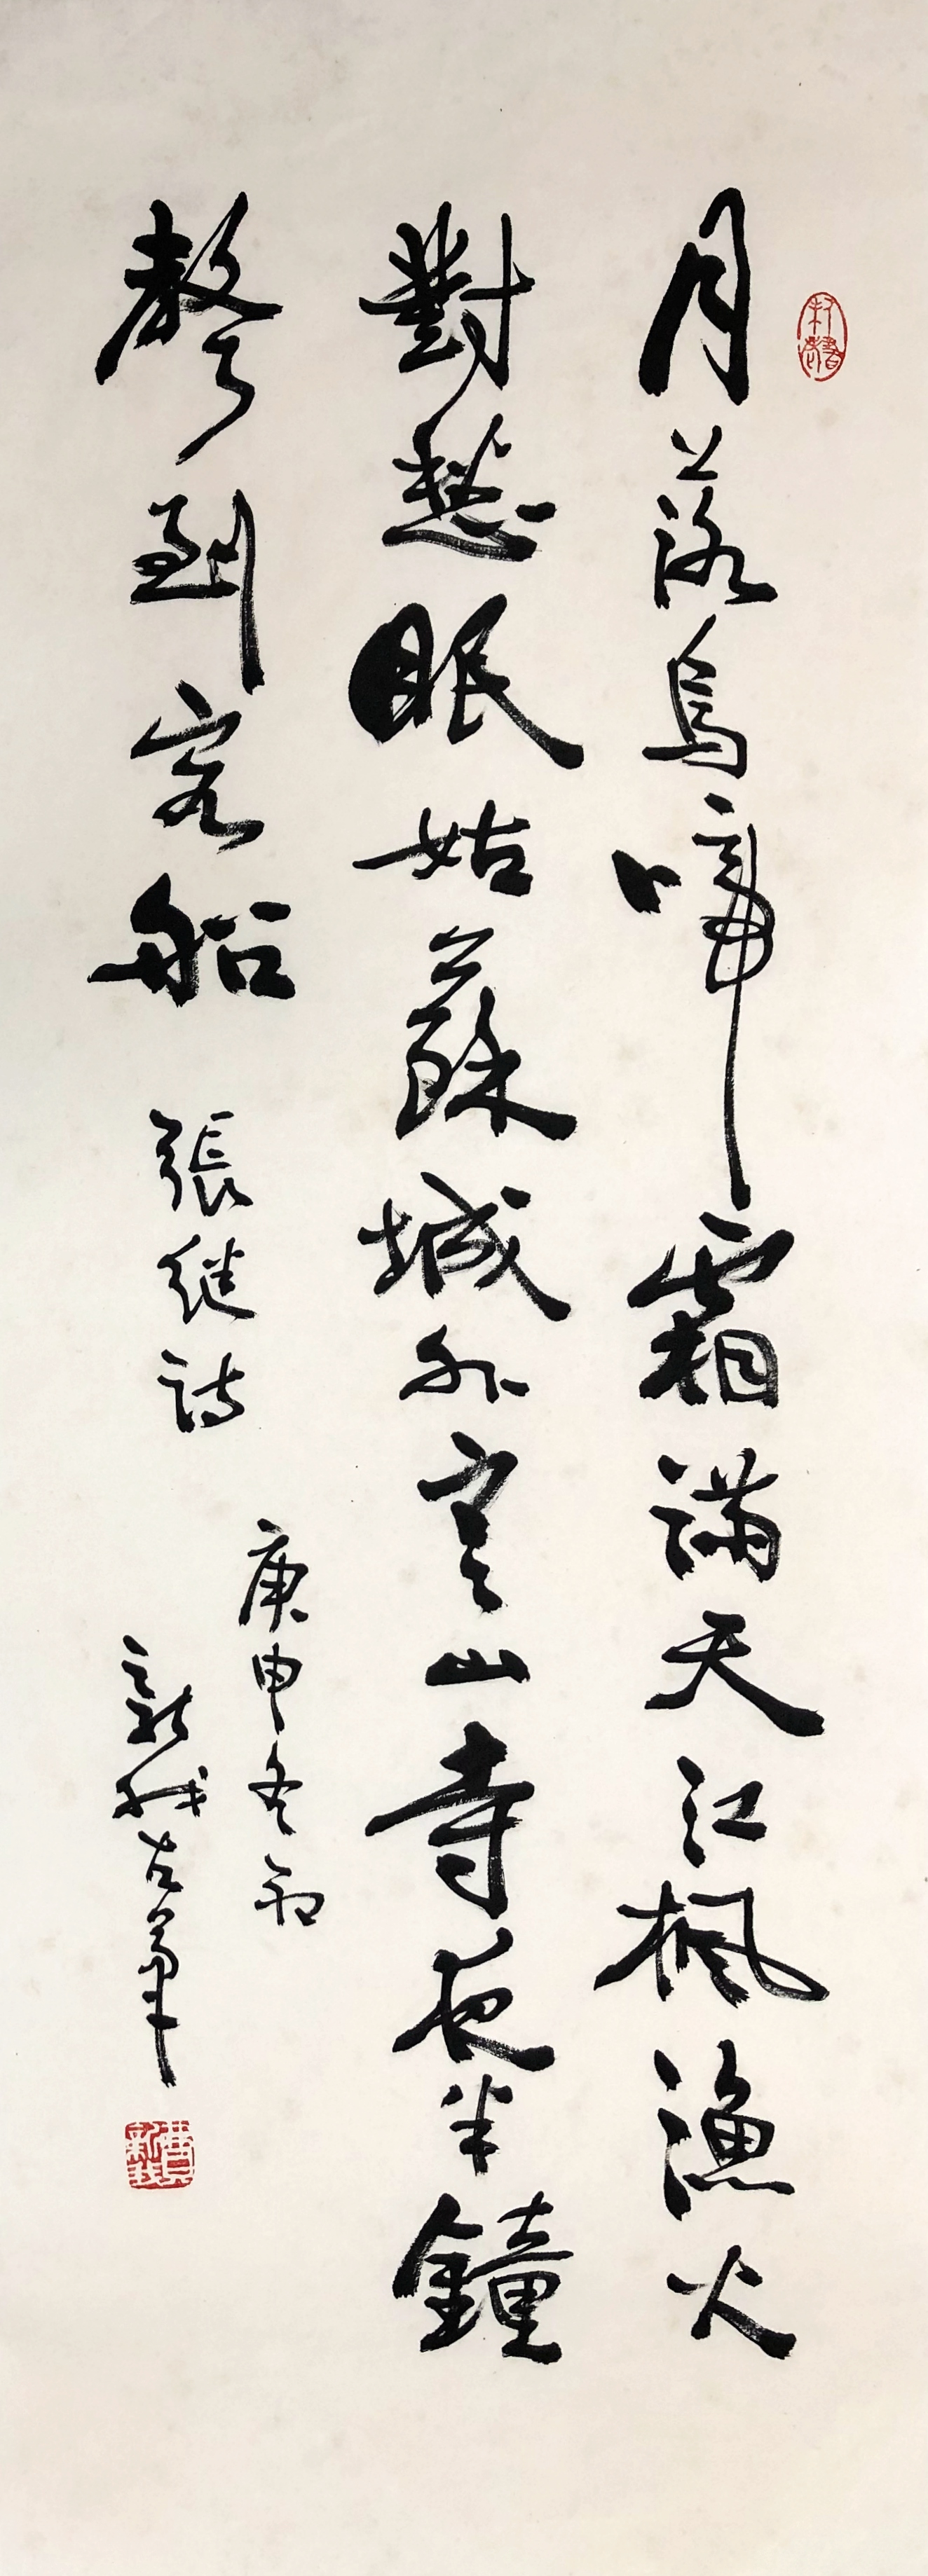 月落烏啼霜滿天江楓漁火
對愁眠姑蘇城外寒山寺夜半鐘
聲到客船 張继詩
庚申冬初
新我左筆
費新我